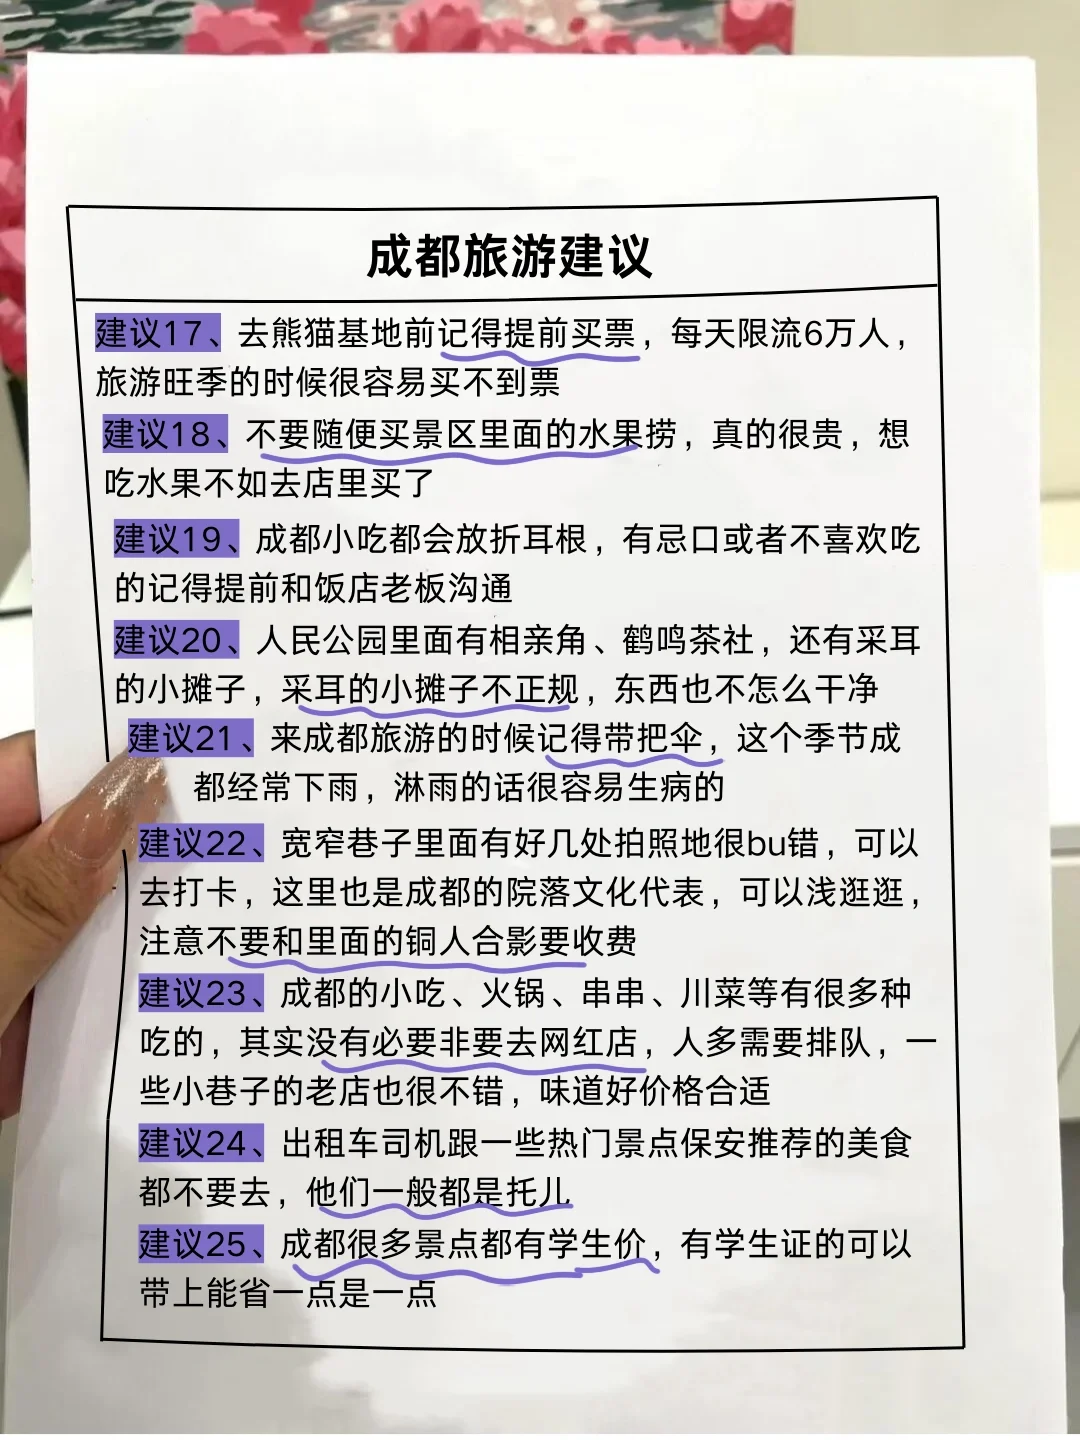 成都旅游建议
建议17、去熊猫基地前记得提前买票，每天限流6万人，
旅游旺季的时候很容易买不到票
建议18、不要随便买景区里面的水果捞，真的很贵，想
吃水果不如去店里买了
建议19、成都小吃都会放折耳根，有忌口或者不喜欢吃
的记得提前和饭店老板沟通
建议20、人民公园里面有相亲角、鹤鸣茶社，还有采耳
的小摊子，采耳的小摊子不正规，东西也不怎么干净
建议21、来成都旅游的时候记得带把伞，这个季节成
都经常下雨，淋雨的话很容易生病的
建议22、宽窄巷子里面有好几处拍照地很bu错，可以
去打卡，这里也是成都的院落文化代表，可以浅逛逛，
注意不要和里面的铜人合影要收费
建议23、成都的小吃、火锅、串串、川菜等有很多种
吃的，其实没有必要非要去网红店，人多需要排队，一
些小巷子的老店也很不错，味道好价格合适
建议24、出租车司机跟一些热门景点保安推荐的美食
都不要去，他们一般都是托儿
建议25、成都很多景点都有学生价，有学生证的可以
带上能省一点是一点